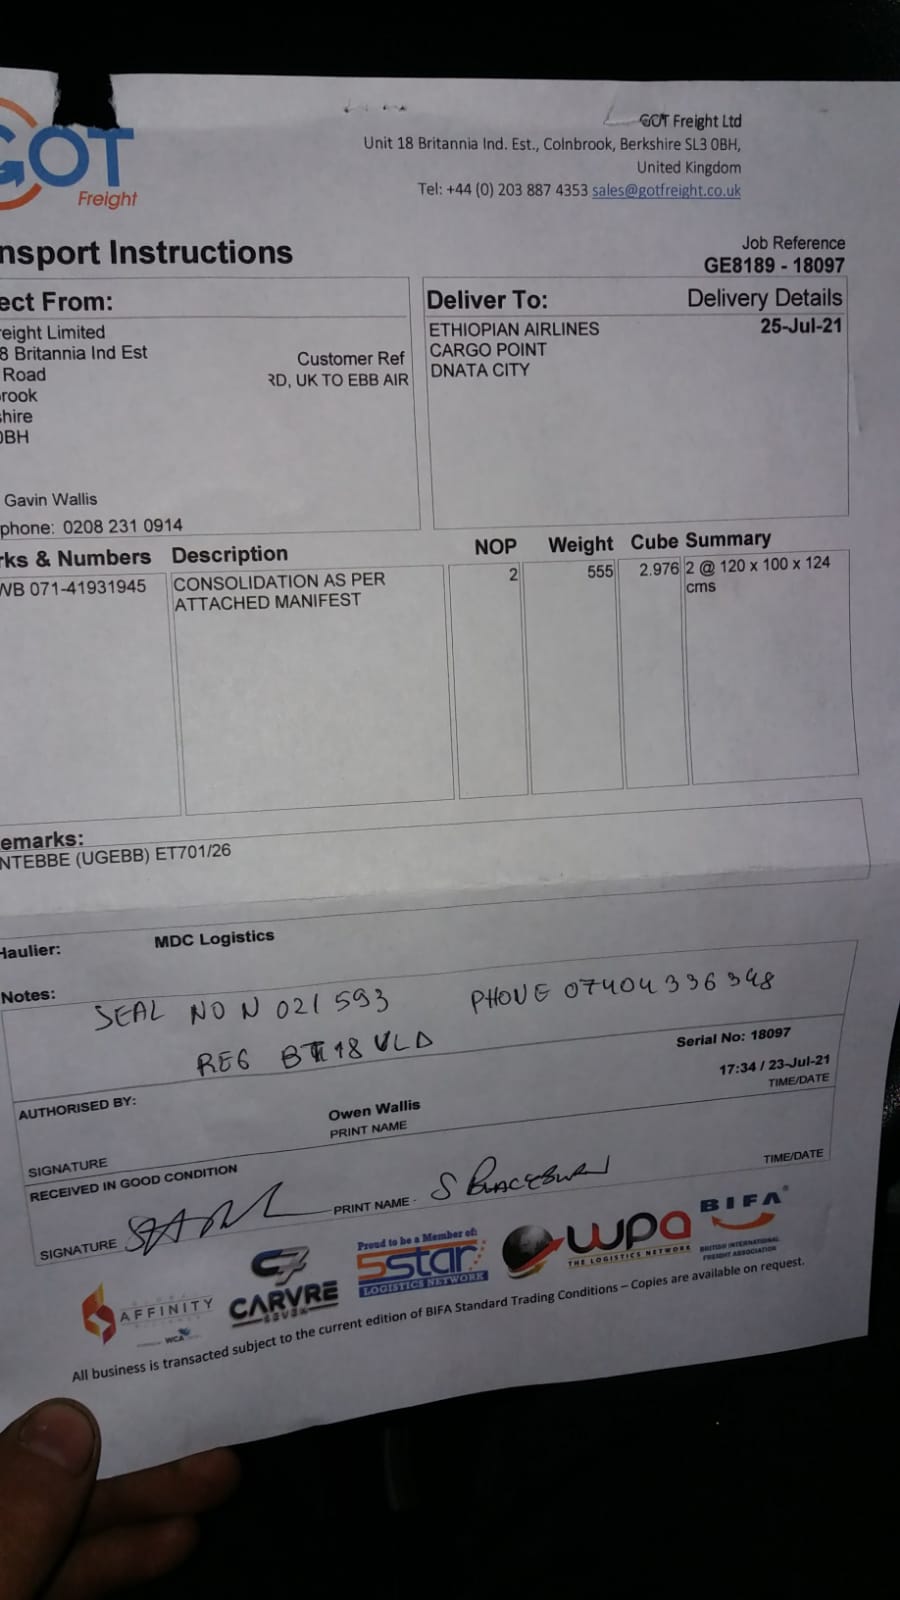 GOT
Freight
GOT Freight Ltd
Unit 18 Britannia Ind. Est., Colnbrook, Berkshire SL3 0BH,
United Kingdom
Tel: +44 (0) 203 887 4353 sales@gotfreight.co.uk
nsport Instructions
Job Reference
GE8189 - 18097
ect From:
reight Limited
8 Britannia Ind Est
Road
rook
shire
0BH
Customer Ref
RD, UK TO EBB AIR
Gavin Wallis
phone: 0208 231 0914
Deliver To: Delivery Details
25-Jul-21
ETHIOPIAN AIRLINES
CARGO POINT
DNATA CITY
rks & Numbers Description NOP Weight Cube Summary
WB 071-41931945 CONSOLIDATION AS PER 2 555 2.976 2 @ 120 x 100 x 124
ATTACHED MANIFEST cms
emarks:
NTEBBE (UGEBB) ET701/26
Haulier: MDC Logistics
Notes:
SEAL NO N 021593 PHONE 07404 336348
REG BT18 VLD
Serial No: 18097
AUTHORISED BY:
17:34 / 23-Jul-21
TIME/DATE
Owen Wallis
PRINT NAME
SIGNATURE
RECEIVED IN GOOD CONDITION
TIME/DATE
SIGNATURE PRINT NAME S BLACKBURN
AFFINITY
WCA
C7
CARVRE
SEVEN
Proud to be a Member of:
5star
LOGISTICS NETWORK
wpa
THE LOGISTICS NETWORK
BIFA
BRITISH INTERNATIONAL
FREIGHT ASSOCIATION
All business is transacted subject to the current edition of BIFA Standard Trading Conditions – Copies are available on request.